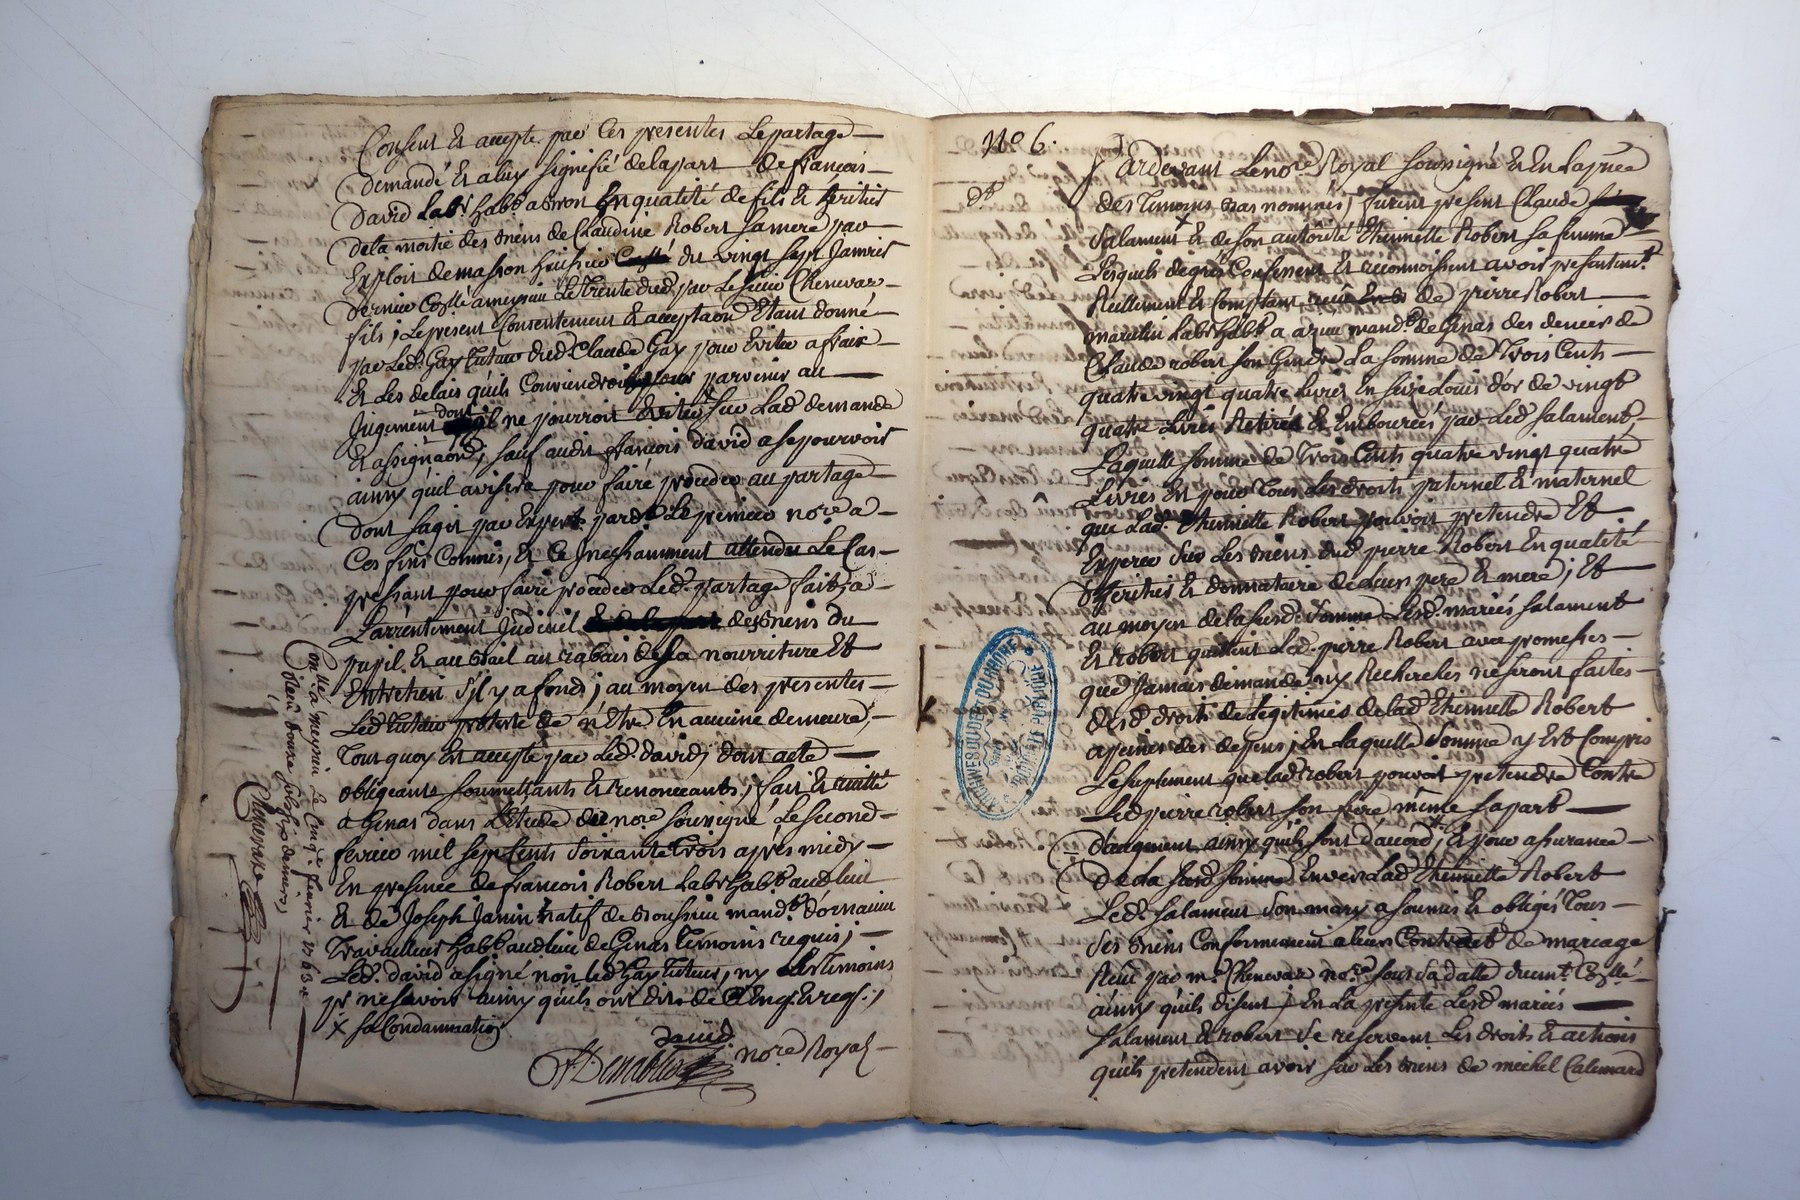 Consent Et accepte par Ces presentes Le partage
Demandé Et a luy signifié de la part de francois
David Labr. habt a Bron En qualité de fils & heritier
de la moitié des Biens de Claudine Robert sa mere par
Exploit de masson huissier du vingt sept Janvier
dernier Collé a meyzin Le Trente dud. par Le sieur Chenevaz
fils ; Le present Consentement & acceptaon Etant donné
par Led. Gay Tuteur dud. Claude Gay pour Eviter a frair
Et Les delais qu'ils Conviendroit pour parvenir au
Jugement dont il ne pourroit Eviter sur Lad. demande
Et assignaon, sauf audit francois David a se pourvoir
ainsy quil avisera pour faire proceder au partage
Dont sagit par Expert pardt. Le premier nore. a
Ces fins Commis, Et Ce Incessamment attendu Le Cas
pressant pour faire proceder Led. partage fait, a
L'arrentement Judiciel des Biens du
pupil & au Bail au rabais de sa nourriture Et
Entretien s'il y a fond ; au moyen des presentes
Led. Tuteur proteste de n'Etre En aucune demeure,
Tout quoy Est accepté par Led. David, dont acte
obligeants soumettants & renonceants, fait & recitté
a Genas dans L'Etude du nore. soussigné Le second
fevrier mil sept Cents Soixante Trois apres midy
En presence de francois Robert Labr. habt audt lieu
Et de Joseph Janin natif de mandt. Dornacieu
Travailleur habt aud. lieu de Genas Temoins requis ;
Led. David a signé non led. Gay Tuteur, ny Les Temoins
pr ne scavoir ainsy qu'ils ont dit de Enq. & reqs.
x sa Condamnation
David
nore Royal
Collé a meyzin Le Cinqe. fevrier 1763
Reçu douze sols six deniers
Chenevaz
No 6.
Pardevant Le nore. Royal soussigné & En La pnce
des Temoins Bas nommés, furent present Claude
Salament & de son autorité Thiennette Robert sa femme
Lesquels de gré Confessent Et reconnoissent avoir presentemt.
Reellement & Comptant de pierre Robert
Labr. habt a mandt. de Genas des deniers de
Claude robert son Gendre La somme de Trois Cents
quatre vingt quatre livres En seize Louis d'or de vingt
quatre Livres Retirés & Embourcés par Led. Salament,
Laquelle somme de Trois Cents quatre vingt quatre
Livres Est pour Tous Les droits paternel & maternel
que Lad. Thiennette Robert pouvoit pretendre Et
Esperer Sur Les Biens dud. pierre Robert En qualité
d'Heritier & donnataire de Leurs pere & mere ; Et
au moyen de la susd. Somme Lesd. mariés Salament
Et Robert quittent Led. pierre Robert avec promesses
que Jamais demande ny Recherches ne seront faites
desd. droits de Legitimes de lad. Etiennette Robert
a peines des depens ; En Laquelle Somme y Est Compris
Le suplement que lad. robert pouvoit pretendre Contre
Led. pierre robert son frere même sa part
D'augment ainsy quils sont d'acord ; & pour assurance
De La susd. Somme Envers Lad. Thiennette Robert
Led. Salament Son mary a soumis & obligés Tous
Ses Biens Conformement a leur Contract de mariage
Receu par me. Chenevaz nore. sous Sa datte Collé
ainsy quils disent ; En La presente Lesd. mariés
Salament & robert se reservent Les droits & actions
quils pretendent avoir sur Les Biens de michel Calemard
ARCHIVES DU DEP. DU RHONE